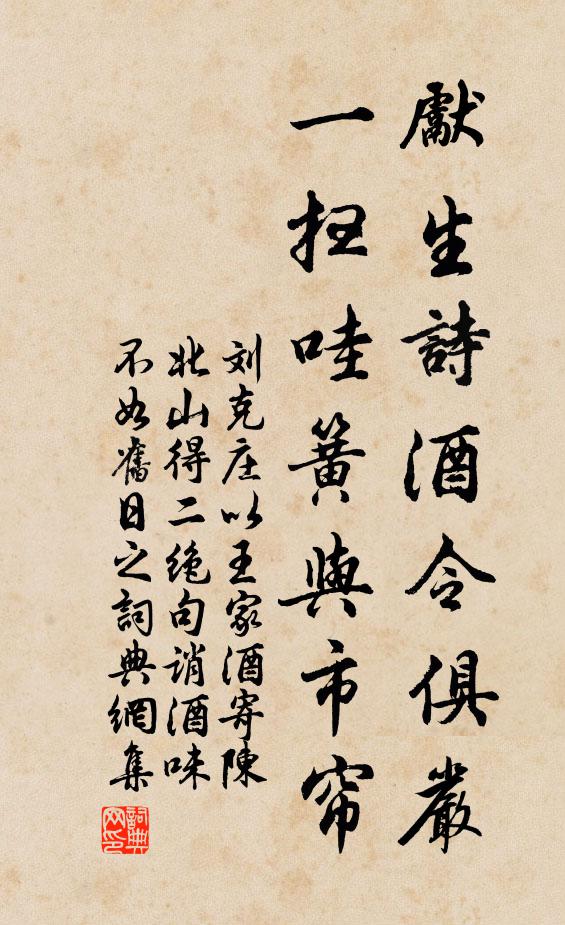 獻生詩酒令俱嚴
一扫哇簧與市帘
刘克庄以王家酒寄陳
北山得二绝句誚酒味
不如舊日之詞典網集
詞典网印